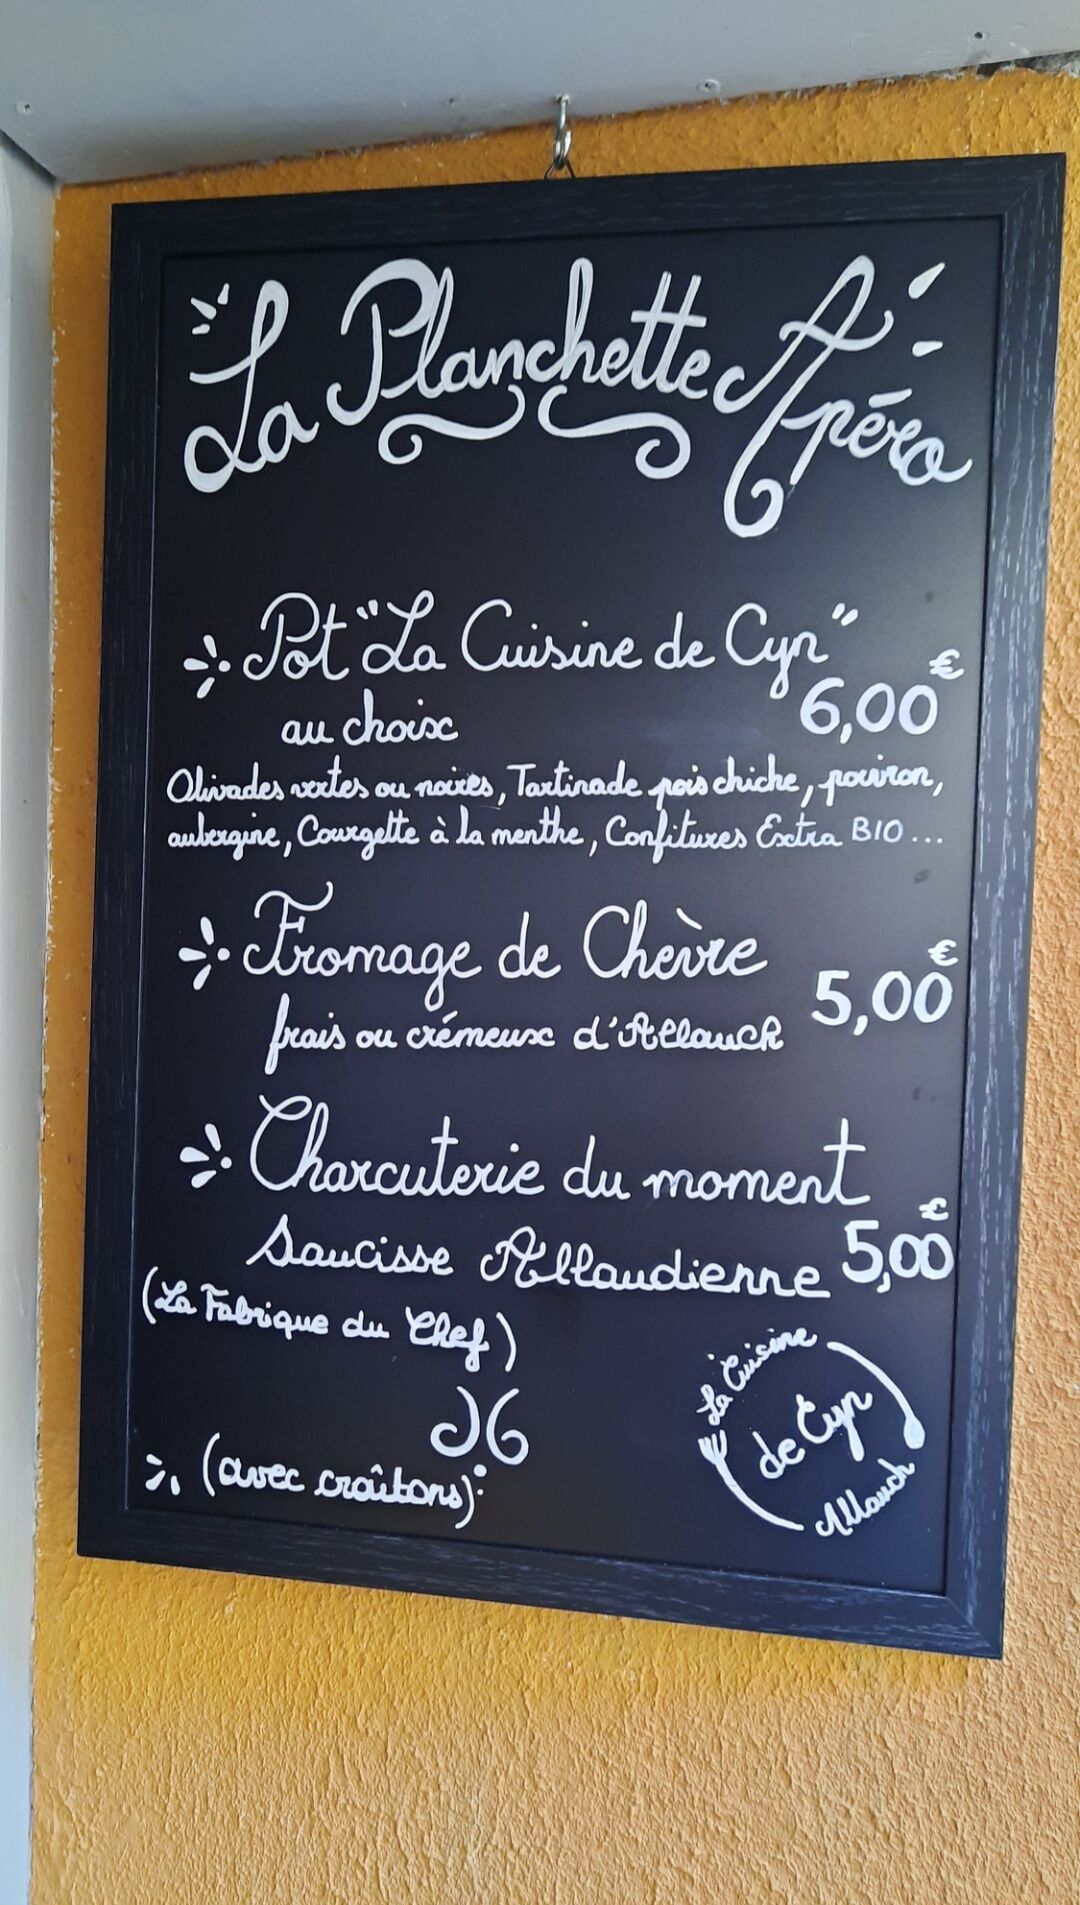 La Planchette Apéro
Pot "La Cuisine de Cyn"
au choix 6,00€
Olivades vertes ou noires, Tartinade pois chiche, poivron,
aubergine, Courgette à la menthe, Confitures Extra BIO...
Fromage de Chèvre
frais ou crémeux d'Allauch 5,00€
Charcuterie du moment
Saucisse Allaudienne 5,00€
(La Fabrique du Chef)
(avec croûtons)
La Cuisine
de Cyn
Allauch